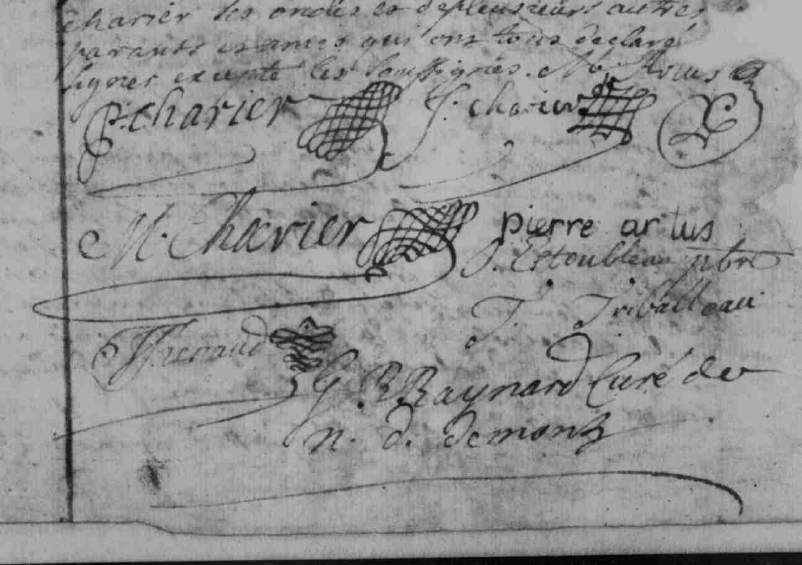 charier les ondes et de plusieurs autres
parants et amis qui ont tous declaré
signer excepté les soussignés.
P. charier J. charier
M. Charier pierre artus
J. Estoubleau pbre
J. Triballeau
Renaud
G R Raynard Curé de
n. d. demonz